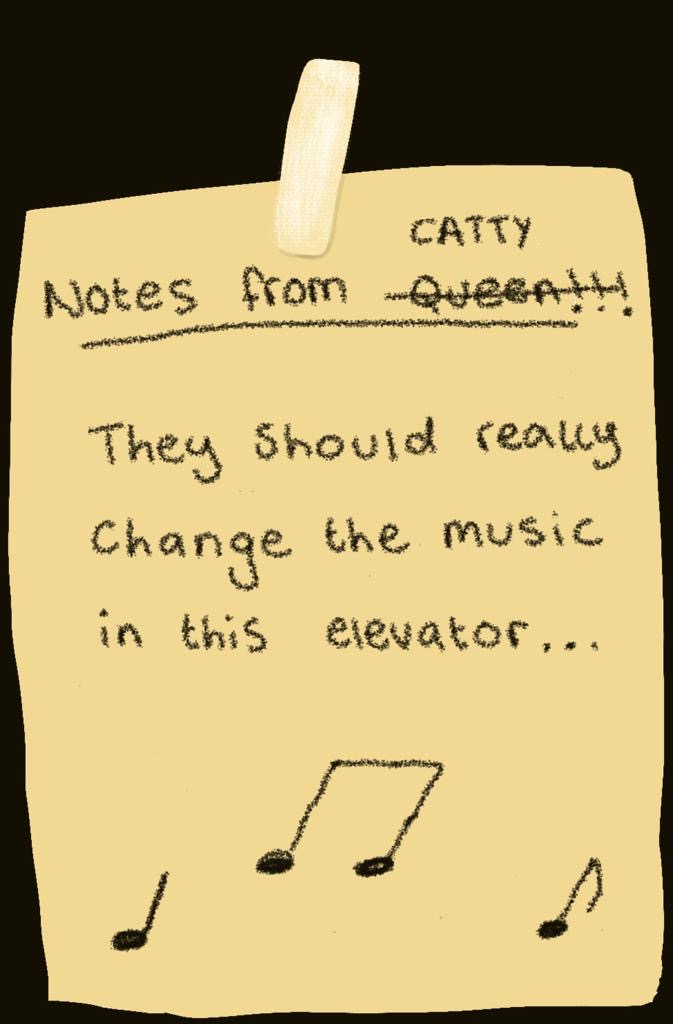 CATTY
Notes from Queen!!!
They should really
Change the music
in this elevator...